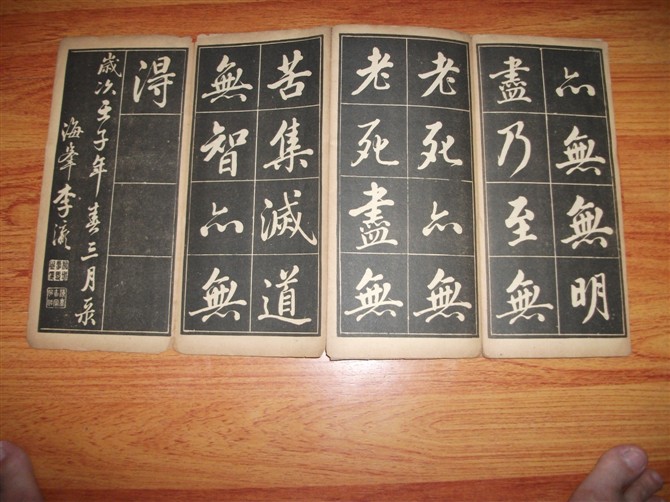 亦無無明
盡乃至無
老死亦無
老死盡無
苦集滅道
無智亦無
得
歲次壬子年春三月
海峯李